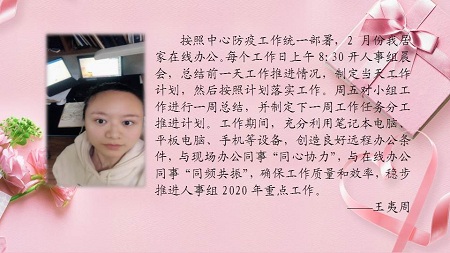 按照中心防疫工作统一部署，2 月份我居
家在线办公。每个工作日上午 8:30 开人事组晨
会，总结前一天工作推进情况，制定当天工作
计划，然后按照计划落实工作。周五对小组工
作进行一周总结，并制定下一周工作任务分工
推进计划。工作期间，充分利用笔记本电脑、
平板电脑、手机等设备，创造良好远程办公条
件，与现场办公同事“同心协力”，与在线办公
同事“同频共振”，确保工作质量和效率，稳步
推进人事组 2020 年重点工作。
——王夷周